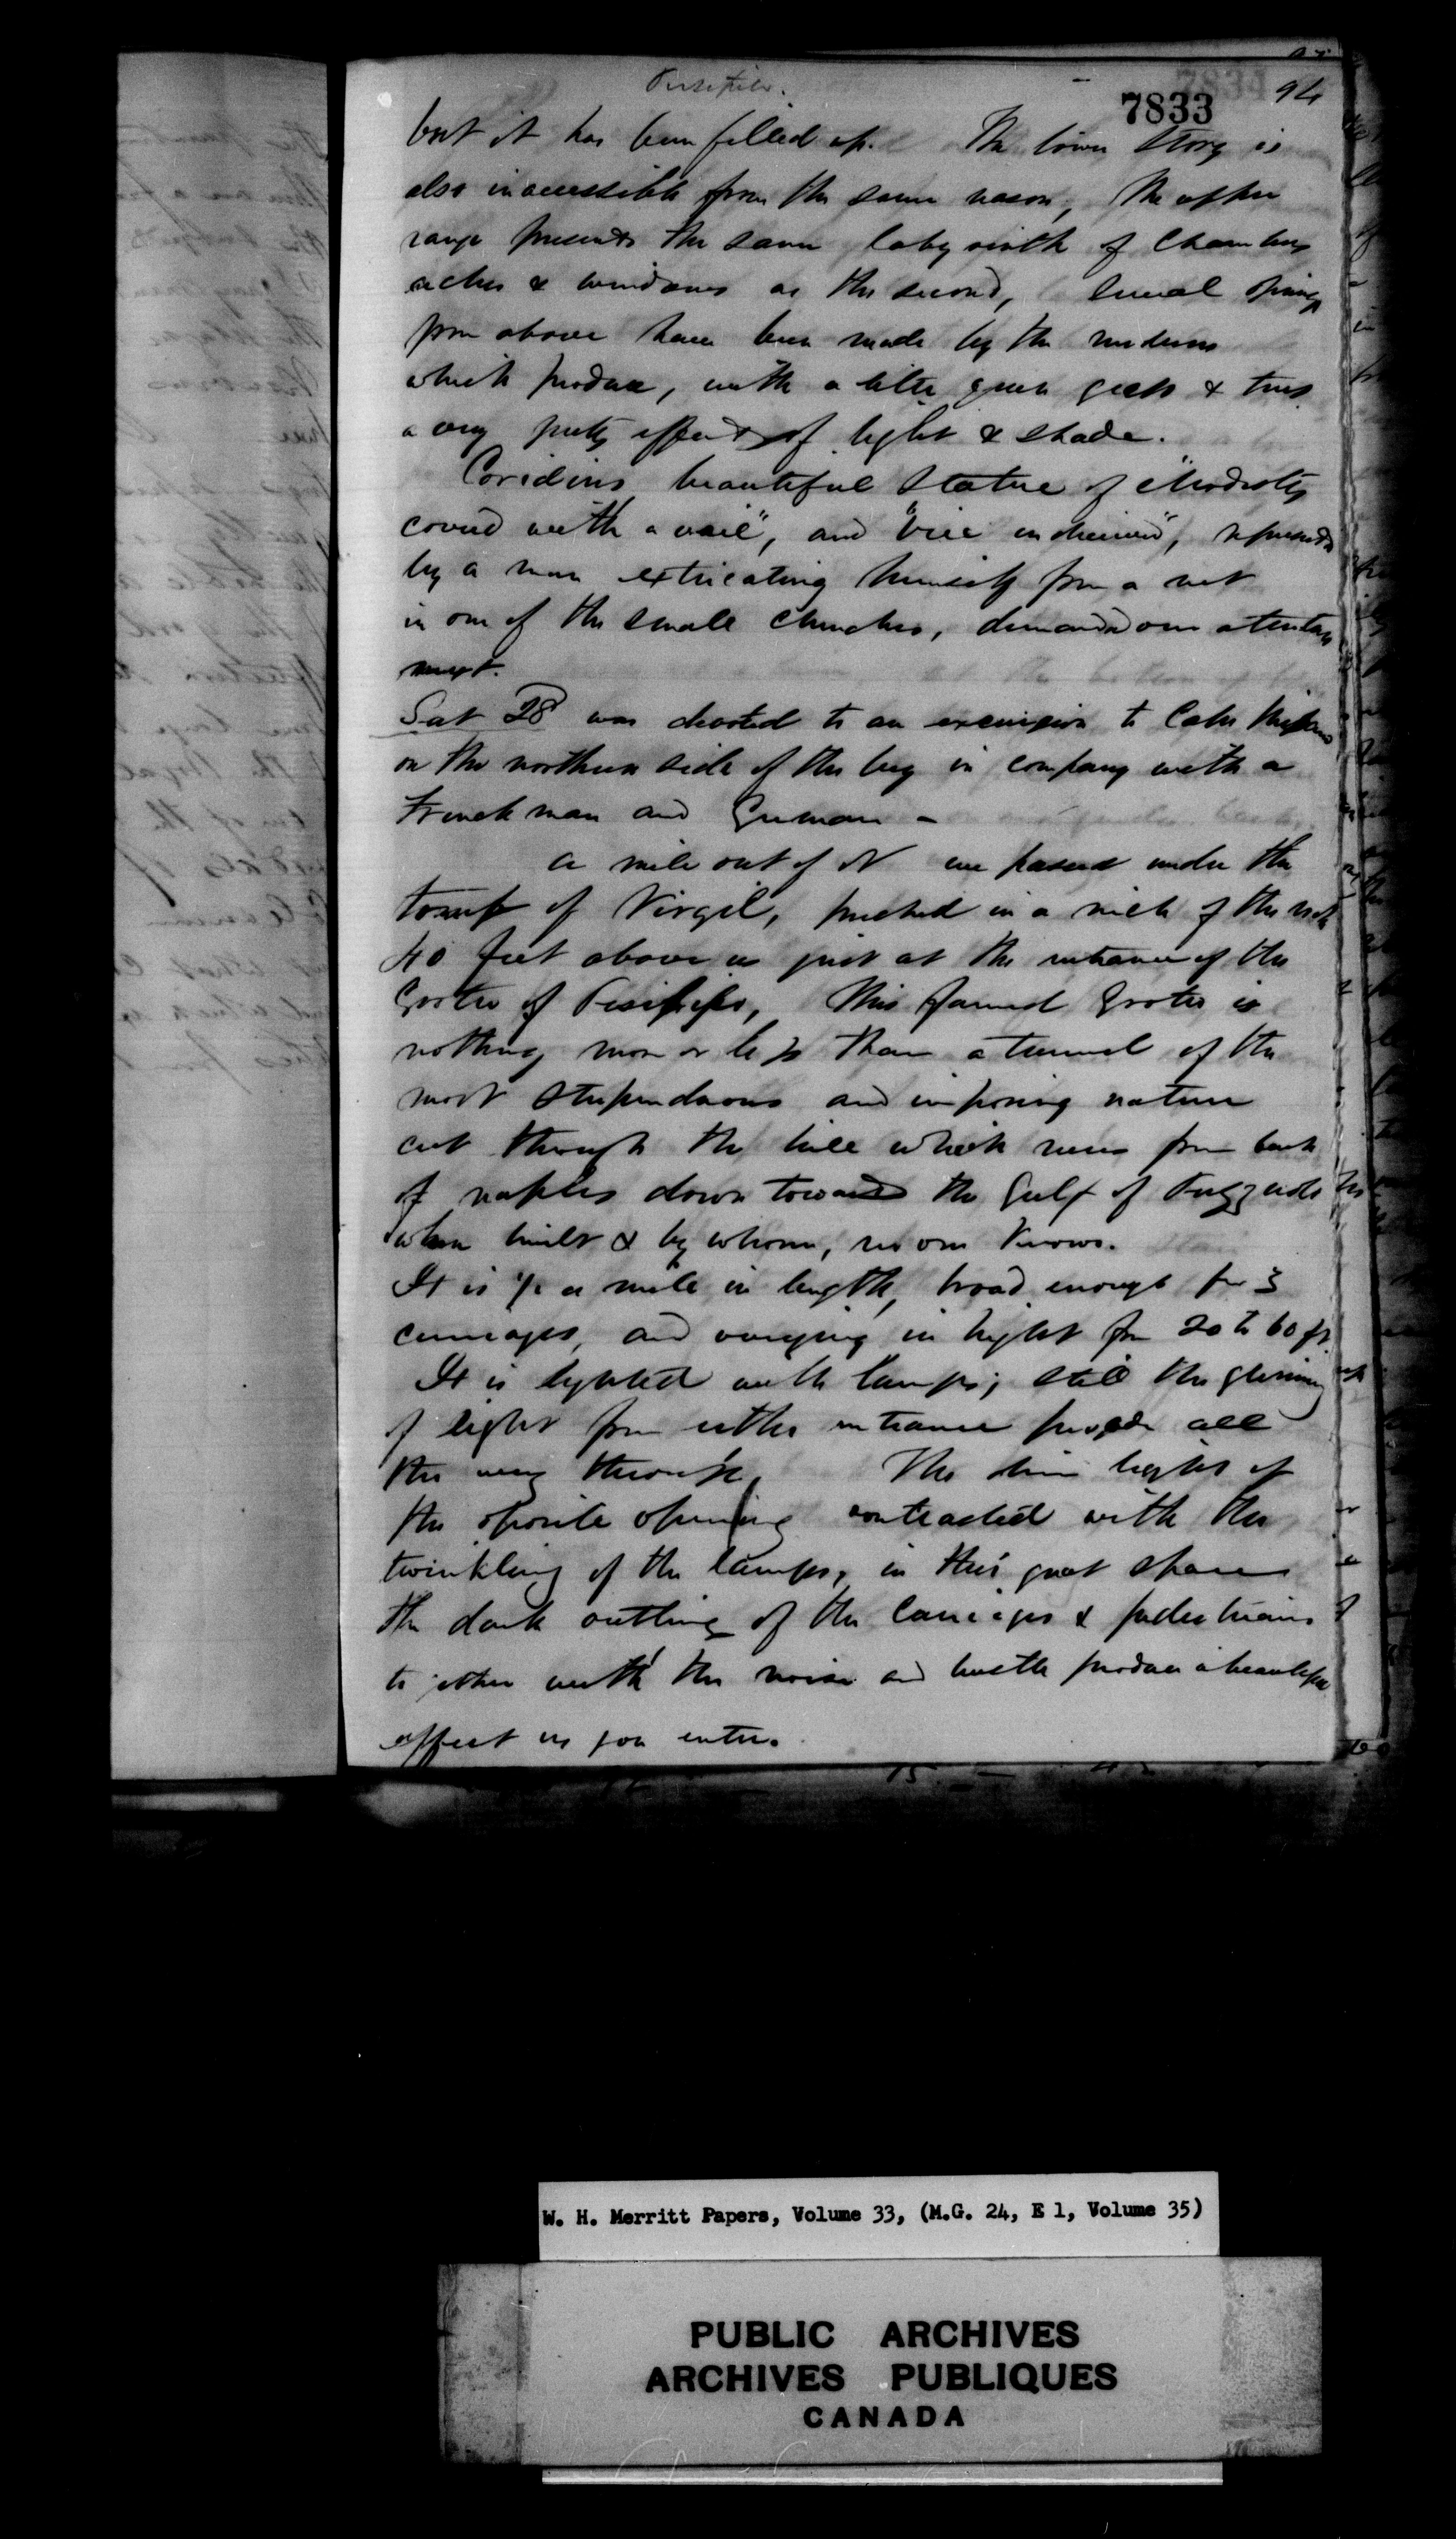 Pausilipo.
7833
94
but it has been filled up. The lower story is
also inaccessible from the same reason, The upper
range presents the same labyrinth of Chambers
arches & windows as the second, several openings
from above have been made by the moderns
which produce, with a little green grass & trees
a very pretty effect of light & shade.
Coridins beautiful Statue of "Modesty
covered with a vail", and "Vice undeceived", represented
by a man extricating himself from a net
in one of the small churches, demanded our attention
next.
Sat 28 was devoted to an excursion to Cape
on the northern side of the bay in company with a
Frenchman and German -
a mile out of N we passed under the
tomb of Virgil, perched in a nich of the rock
40 feet above us just at the entrance of the
Grotto of Pausilipo, This famed Grotto is
nothing more or less than a tunnel of the
most stupendous and imposing nature
cut through the hill which runs from back
of naples down towards the Gulf of Puzzuoli
when built & by whom, no one knows.
It is ½ a mile in length, broad enough for 3
carriages, and varying in hight from 20 to 60 ft.
It is lighted with lamps; still the glimmering
of light from either entrance all
the way through. The dim light of
the oposite opening contrasted with the
twinkling of the lamps, in this great space
the dark outline of the Carriages & pedestrians
together with the noise and bustle produce a beautiful
effect as you enter.
W. H. Merritt Papers, Volume 33, (M.G. 24, E 1, Volume 35)
PUBLIC ARCHIVES
ARCHIVES PUBLIQUES
CANADA